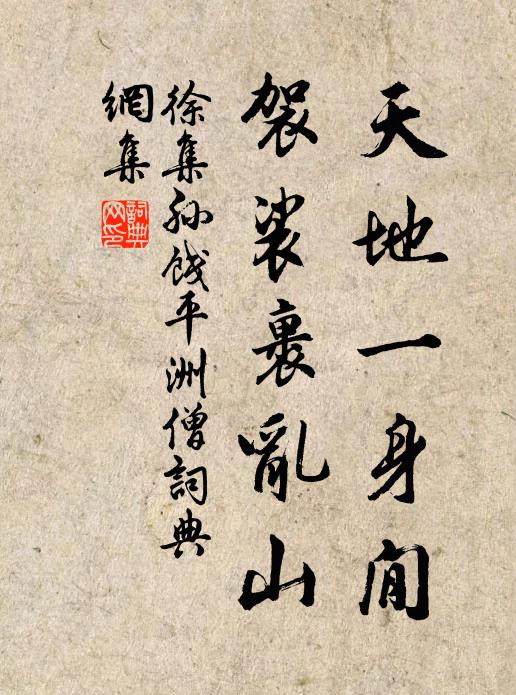 天地一身閒
袈裟裹亂山
徐集孙餞平洲僧詞典
網集
詞典網印